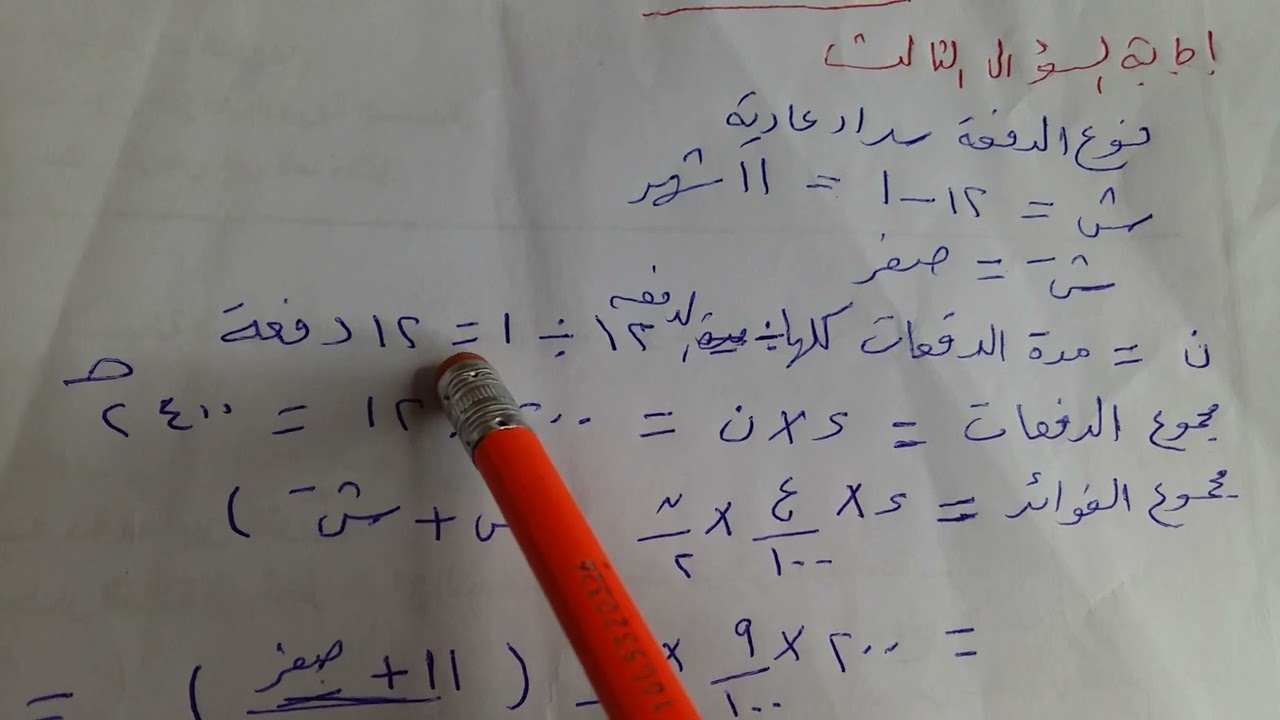 إجابة السؤال الثالث
نوع الدفعة سداد عادية
ش = ١٢ – ١ = ١١ شهر
شَ = صفر
ن = مدة الدفعات كلها ÷ لدفعه ١٢ ÷ ١ = ١٢ دفعة
مجموع الدفعات = د × ن = ٢٠٠ ١٢ = ٢٤٠٠ ط
مجموع الفوائد = د × ع/١٠٠ × ن/٢ + شَ )
= ٢٠٠ × ٩/١٠٠ × ( ١١ + صفر ) =
16GS520326